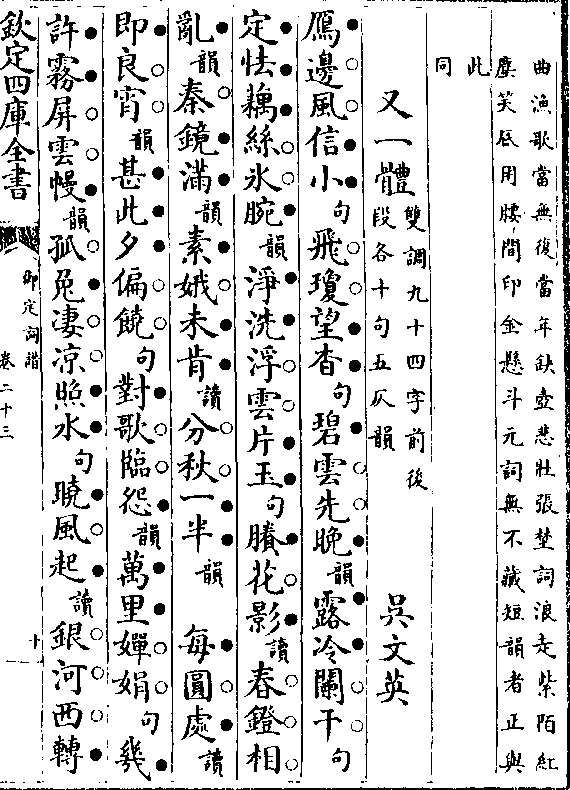 曲漁歌當無後當年缺壺悲壯張埜詞浪走紫陌紅
塵笑底用腰間印金懸斗元詞無不藏短韻者正與
此
同
又一體雙調九十四字前後段各十句五仄韻 吳文英
鴈邊風信小句飛瓊望杳句碧雲先晚韻露冷闌干句
定怯藕絲冰腕韻淨洗浮雲片玉句勝花影讀春鐙相
亂韻秦鏡滿韻素娥未肯讀分秋一半韻 每圓處讀
即良宵韻甚此夕偏饒句對歌臨怨韻萬里嬋娟句幾
許霧屏雲幔韻孤兔凄涼照水句曉風起讀銀河西轉
欽定四庫全書
御定詞譜
卷二十三
十